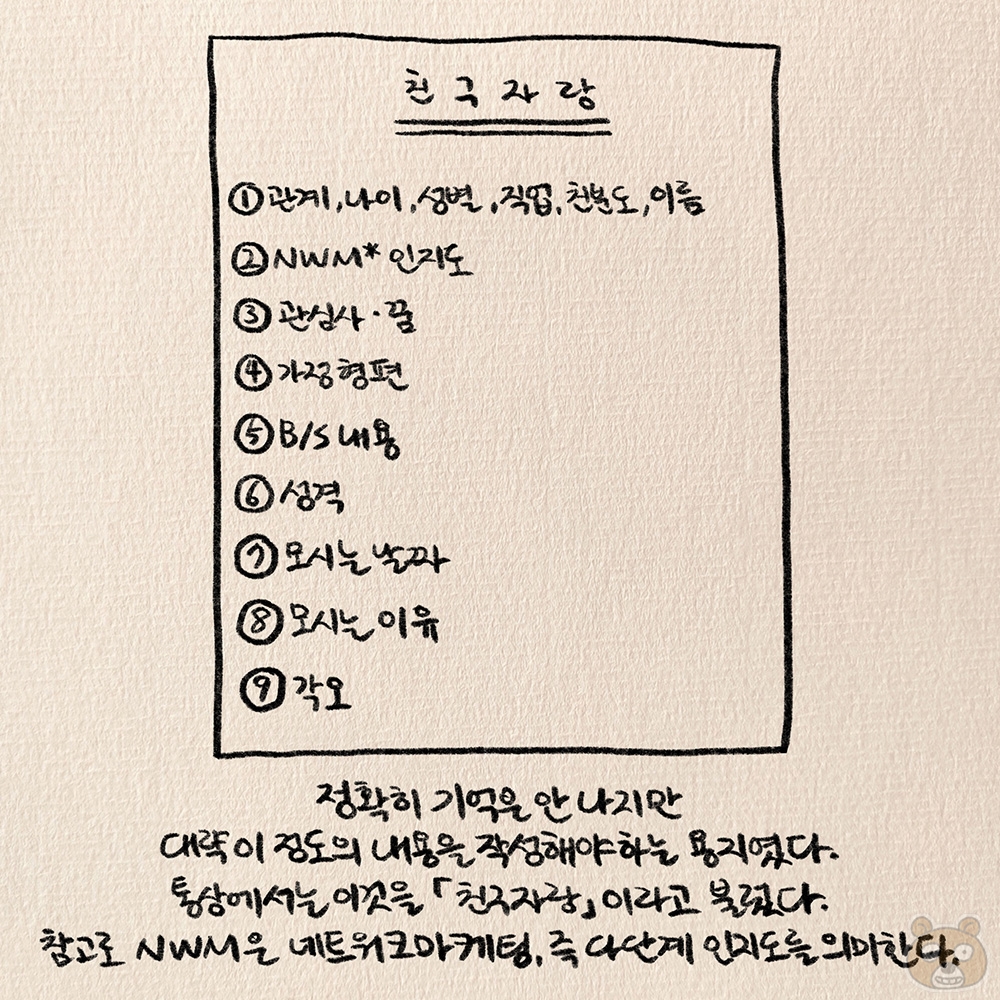 친구자랑
① 관계, 나이, 성별, 직업, 친분도, 이름
② NWM* 인지도
③ 관심사·꿈
④ 가정형편
⑤ B/S 내용
⑥ 성격
⑦ 모시는 날짜
⑧ 모시는 이유
⑨ 각오
정확히 기억은 안 나지만
대략 이 정도의 내용을 작성해야하는 용지였다.
통상에서는 이것을 「친구자랑」이라고 불렀다.
참고로 NWM은 네트워크마케팅, 즉 다단계 인지도를 의미한다.